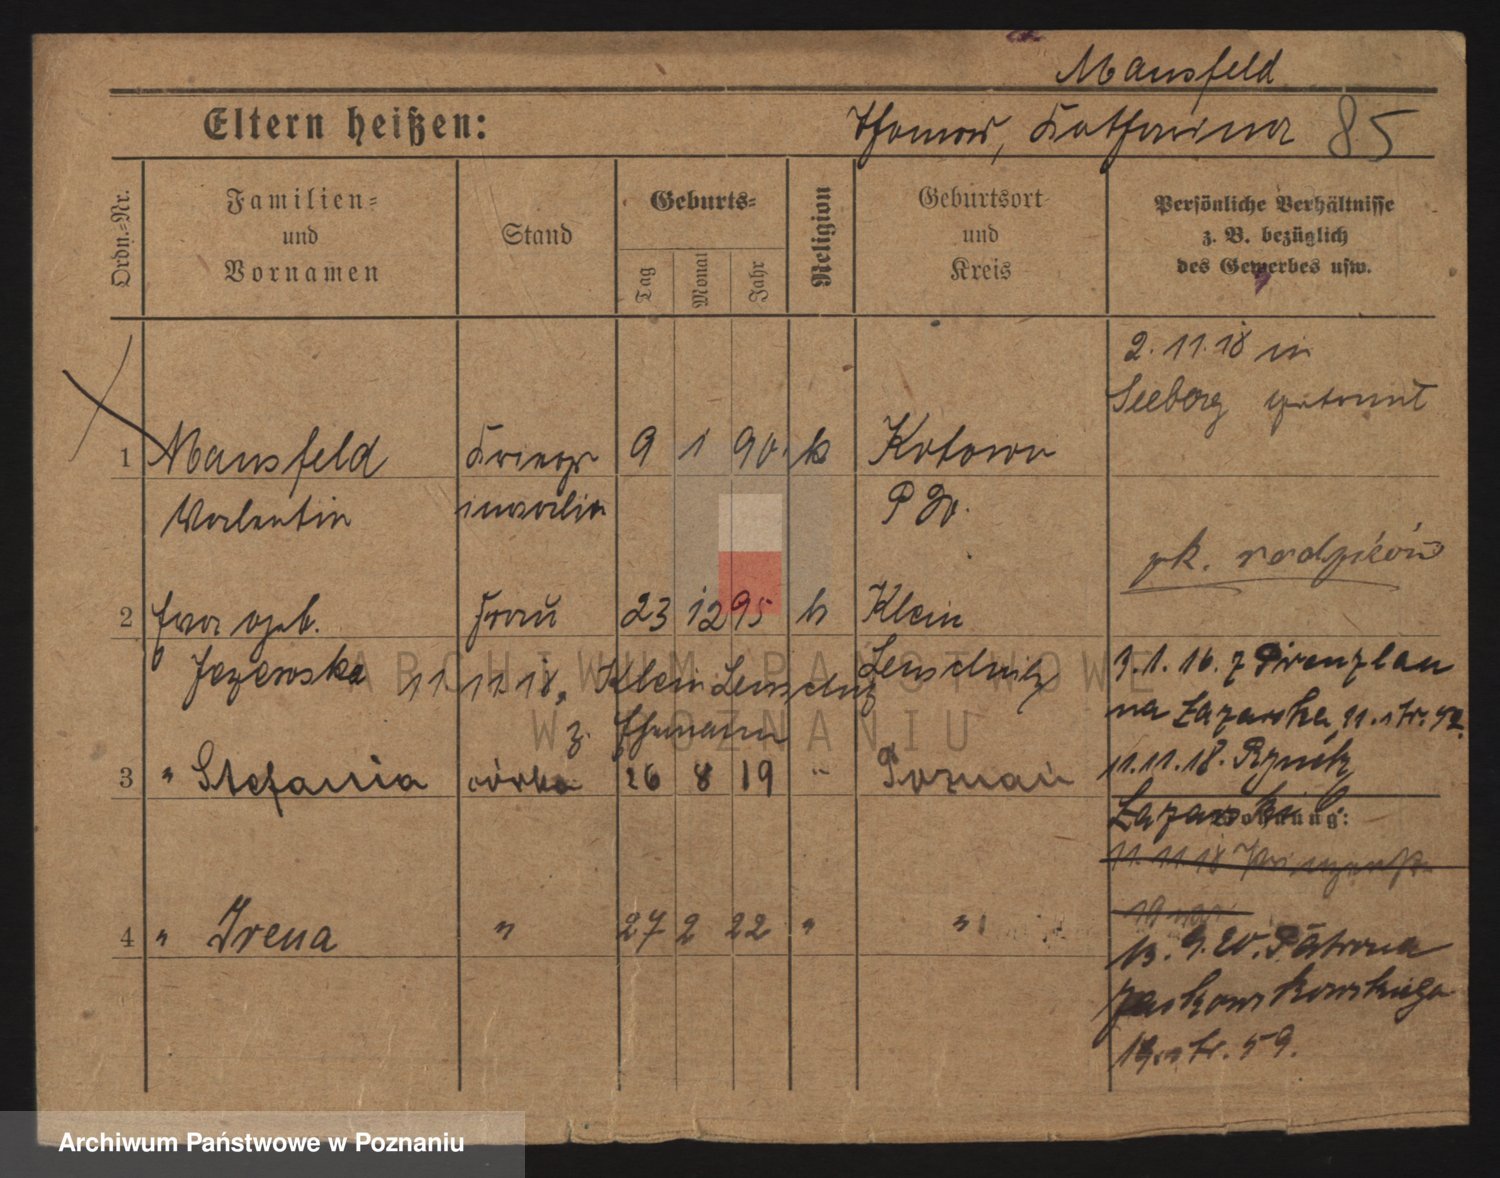 Mansfeld
Eltern heißen: Thomas, Katharina 85
Ordn.-Nr.
Familien-
und
Vornamen
Stand
Geburts-
Tag
Monat
Jahr
Religion
Geburtsort
und
Kreis
Persönliche Verhältnisse
z. B. bezüglich
des Gewerbes usw.
2. 11. 18 in
Seeberg getraut
1 Mansfeld Kriegs 9 1 90. k Kotowo
Valentin invalide P. W.
pk. rodziców
2 Frau 23 12 95 k Klein
geb.
Jezierska 11 11 18. Klein Lenschütz Lenschütz
z. Ehemann
3.1.16. z Prenzlau
na Łazarska, 21. str. 52.
3 " Stefania córka 26 8 19 " Poznań
11.11.18. Rynek
Łazarski 6.
Wohnung:
11. 11 18
4 " Irena " 27 2 22 " "
13. 9. 20. Patrona
Jackowskiego
19. str. 59.
ARCHIWUM PAŃSTWOWE
W POZNANIU
Archiwum Państwowe w Poznaniu